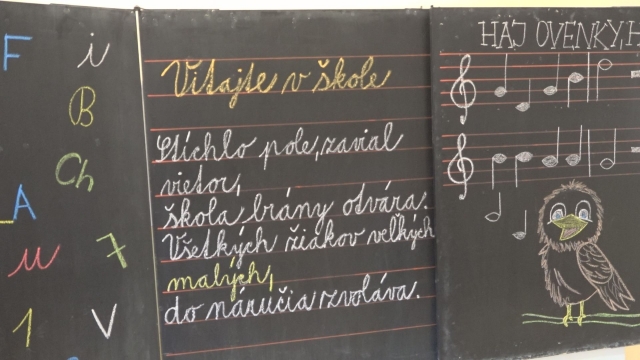 F i
B
Ch
A
u 7
1 V
Vitajte v škole
Stíchlo pole, zavial
vietor,
škola brány otvára.
Všetkých žiakov veľkých
malých,
do náručia zvoláva.
HAJ OVENKY, H